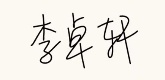 李卓轩